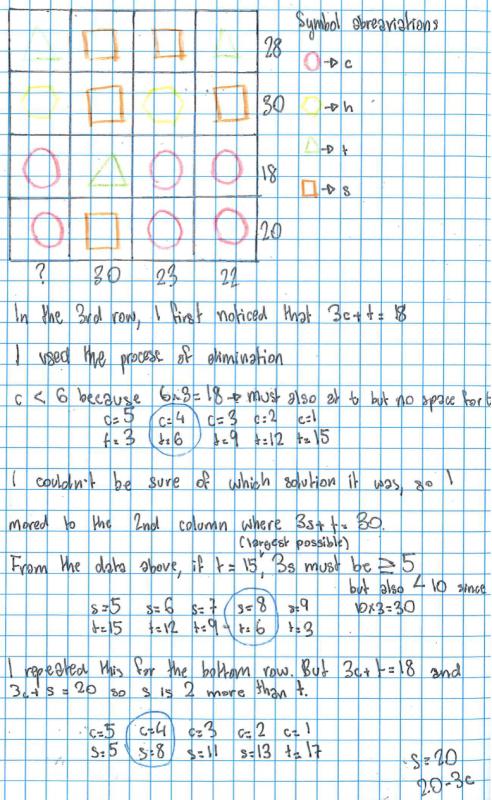 Symbol abreaviations
28
→ c
30
→ h
18
→ t
20
→ s
? 30 23 22
In the 3rd row, I first noticed that 3c+t=18
I used the process of elimination
c < 6 because 6×3=18 → must also at to but no space for t
c=5 c=4 c=3 c=2 c=1
t=3 t=6 t=9 t=12 t=15
I couldn't be sure of which solution it was, so I
moved to the 2nd column where 3s+t=30.
(largest possible)
From the data above, if t=15, 3s must be ≥5
but also <10 since
10×3=30
s=5 s=6 s=7 s=8 s=9
t=15 t=12 t=9 t=6 t=3
I repeated this for the bottom row. But 3c+t=18 and
3c+s=20 so s is 2 more than t.
c=5 c=4 c=3 c=2 c=1
s=5 s=8 s=11 s=13 t=17
s=20
20-3c